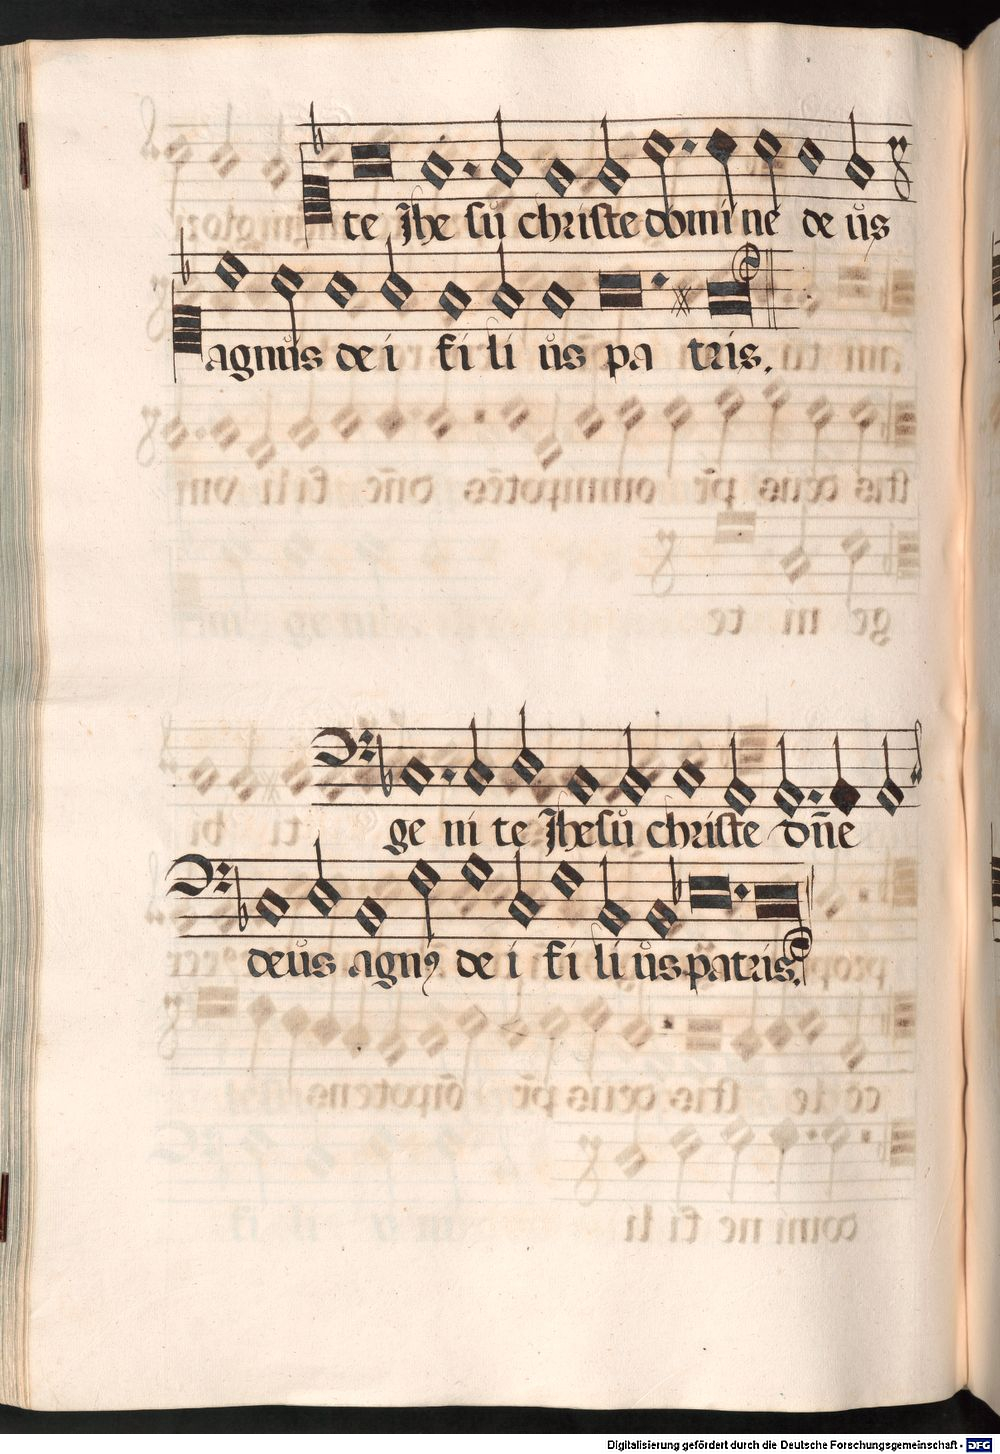 te Jhe sů christe domi ne de ůs
agnůs de i fi li ůs pa tris.
ge ni te Jhesů christe dn̄e
deůs agnꝯ de i fi li ůs patris.
Digitalisierung gefördert durch die Deutsche Forschungsgemeinschaft - DFG